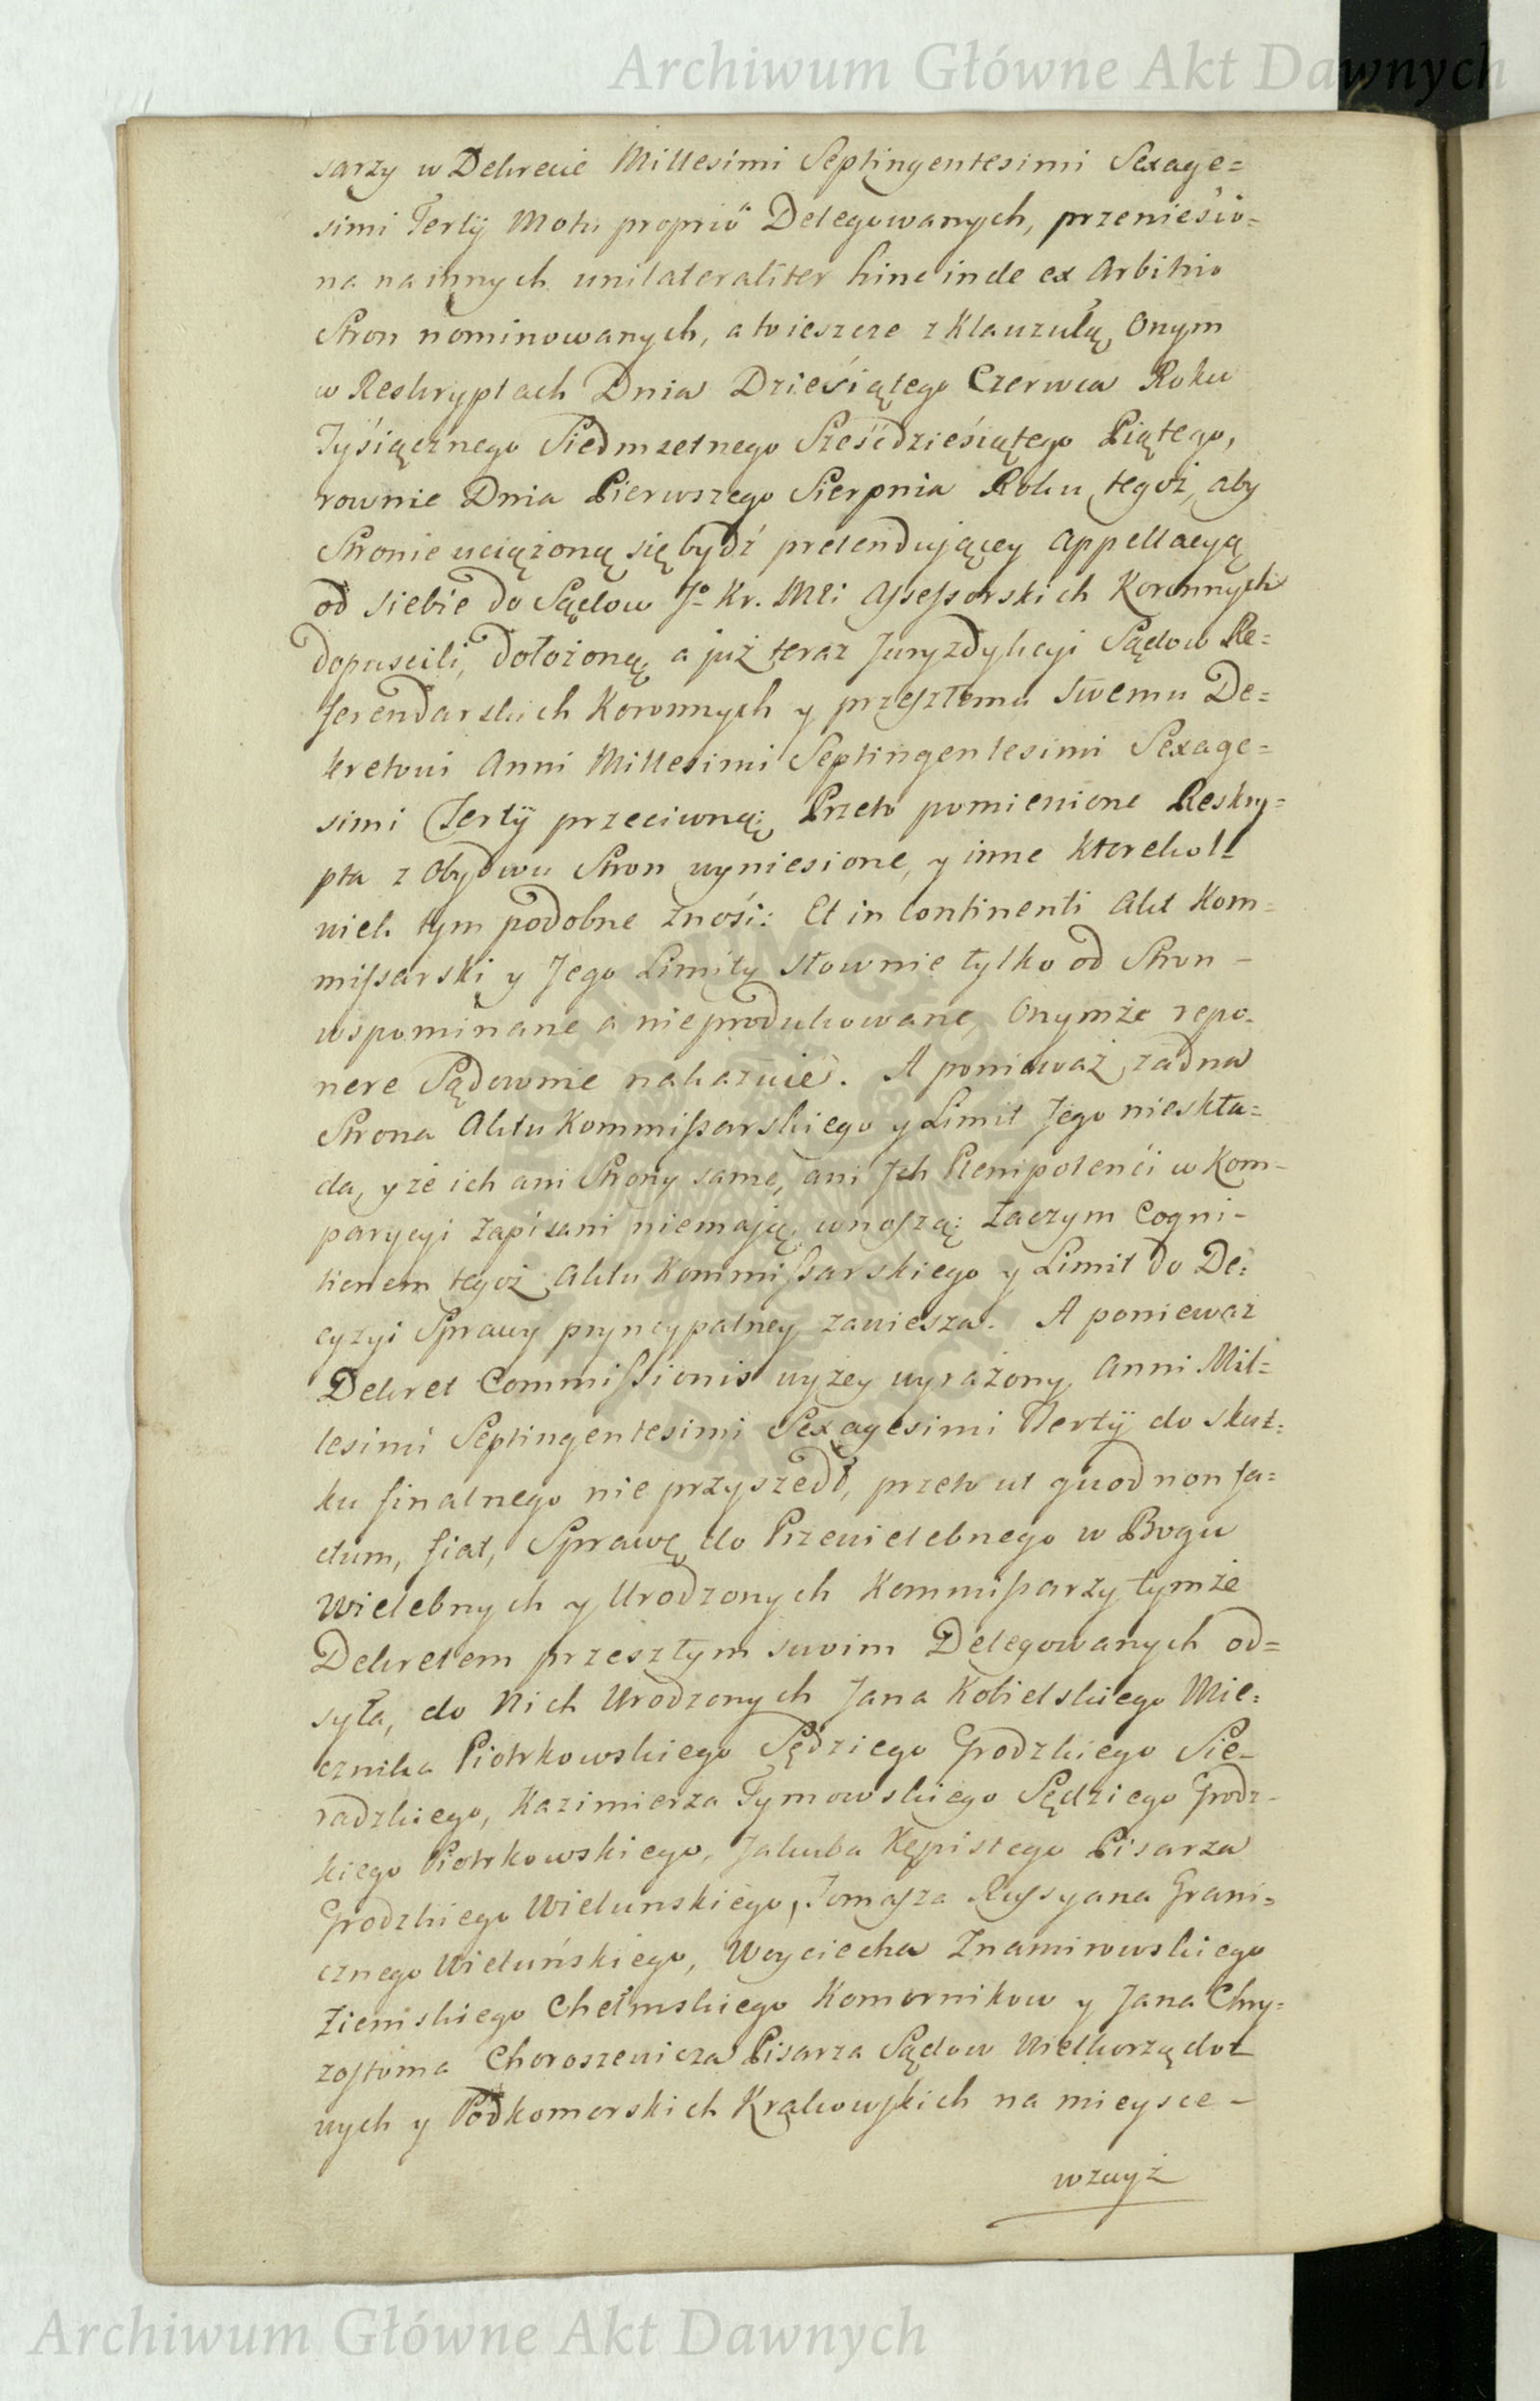 Archiwum Główne Akt Dawnych
sarzy w Dekrecie Millesimi Septingentesimi Sexage=
simi Tertÿ Motu proprio Delegowanych, przenieśio=
na na innych unilateraliter hinc inde ex Arbitrio
Stron nominowanych, a to ieszcze z Klauzulą Onym
w Reskryptach Dnia Dzieśiątego Czerwca Roku
Tyśiącznego Siedmzetnego Sześćdzieśiątego Piątego,
rownie Dnia Pierwszego Sierpnia Roku tegoż, aby
Stronie uciążoną się bydź pretendującey Appellacyą
od siebie do Sądow Jº Kr. Mći Assessorskich Koronnych
dopuscili, dołożoną, a już teraz Juryzdykcyi Sądow Re=
ferendarskich Koronnych y przeszłemu swemu De=
kretowi Anni Millesimi Septingentesimi Sexage=
simi Tertÿ przeciwną; Przeto pomienione Reskry=
pta z Obydwu Stron wyniesione, y inne ktorekol=
wiek tym podobne znośi: Et in Continenti Akt Kom=
missarski y Jego Limity słownie tylko od Stron –
wspominane a nieprodukowane, Onymże repo=
nere Sądownie nakazuie. A ponieważ żadna
Strona Aktu Kommissarskiego y Limit Jego nieskła=
da, y że ich ani Strony same, ani Jch Plenipotenći w Kom=
parycyi zapisani niemają, wnoszą; Zaczym Cogni=
tionem tegoż Aktu Kommissarskiego y Limit do De=
cyzyi Sprawy pryncypalney zawiesza. A ponieważ
Dekret Commissionis wyżey wyrażony Anni Mil=
lesimi Septingentesimi Sexagesimi Tertÿ do skut=
ku finalnego nie przyszedł, przeto ut quod non fa=
ctum, fiat, Sprawę do Przewielebnego w Bogu
Wielebnych y Urodzonych Kommissarzy tymże
Dekretem przeszłym swoim Delegowanych od=
syła, do Nich Urodzonych Jana Kobielskiego Mie=
cznika Piotrkowskiego Sędziego Grodzkiego Sie=
radzkiego, Kazimierza Tymowskiego Sędziego Grodz=
kiego Piotrkowskiego, Jakuba Kępistego Pisarza
Grodzkiego Wielunskiego, Tomasza Russyana Grani=
cznego Wieluńskiego, Woyciecha Znamirowskiego
Ziemskiego Chełmskiego Komornikow y Jana Chry=
zostoma Choroszewicza Pisarza Sądow Wielkorządo=
wych y Podkomorskich Krakowskich na mieysce –
wzwyż
Archiwum Główne Akt Dawnych